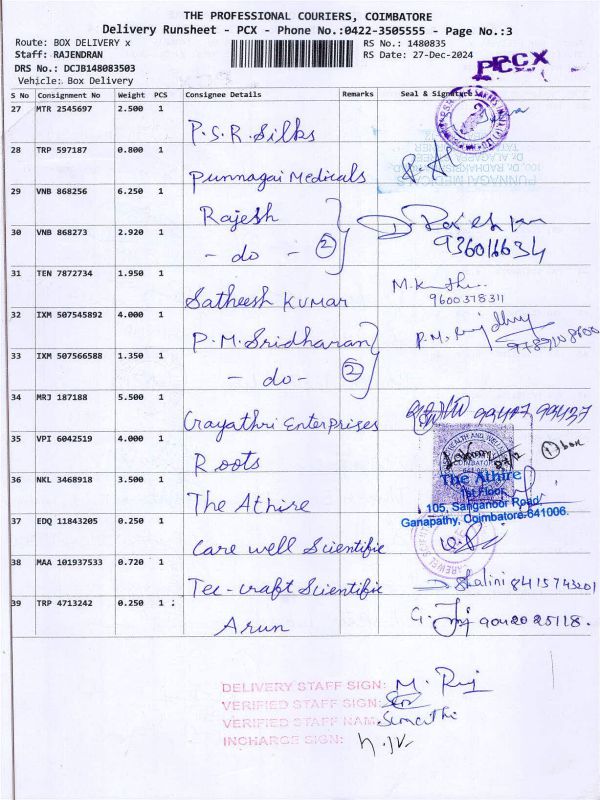 THE PROFESSIONAL COURIERS, COIMBATORE
Delivery Runsheet - PCX - Phone No.:0422-3505555 - Page No.:3
Route: BOX DELIVERY x RS No.: 1480835
Staff: RAJENDRAN RS Date: 27-Dec-2024
DRS No.: DCJB148083503 PCCX
Vehicle: Box Delivery
S No Consignment No Weight PCS Consignee Details Remarks Seal & Signature
27 MTR 2545697 2.500 1 P.S.R. Silks
28 TRP 597187 0.800 1 Punnagai Medicals
29 VNB 868256 6.250 1 Rajesh
30 VNB 868273 2.920 1 - do - 2 936016634
31 TEN 7872734 1.950 1 Satheesh Kumar 9600378311
32 IXM 507545892 4.000 1 P.M. Sridharan P.M.
33 IXM 507566588 1.350 1 - do - 2
34 MRJ 187188 5.500 1 Gayathri Enterprises
35 VPI 6042519 4.000 1 Roots 1 box
36 NKL 3468918 3.500 1 The Athire
The Athire
1st Floor
105, Sanganoor Road
Ganapathy, Coimbatore-641006.
37 EDQ 11843205 0.250 1 Care well Scientific
38 MAA 101937533 0.720 1 Tec-craft Scientific Shalini 8415743201
39 TRP 4713242 0.250 1 ; Arun G. 9042025118.
DELIVERY STAFF SIGN: M. Raj
VERIFIED STAFF SIGN:
VERIFIED STAFF NAM
INCHARGE SIGN: